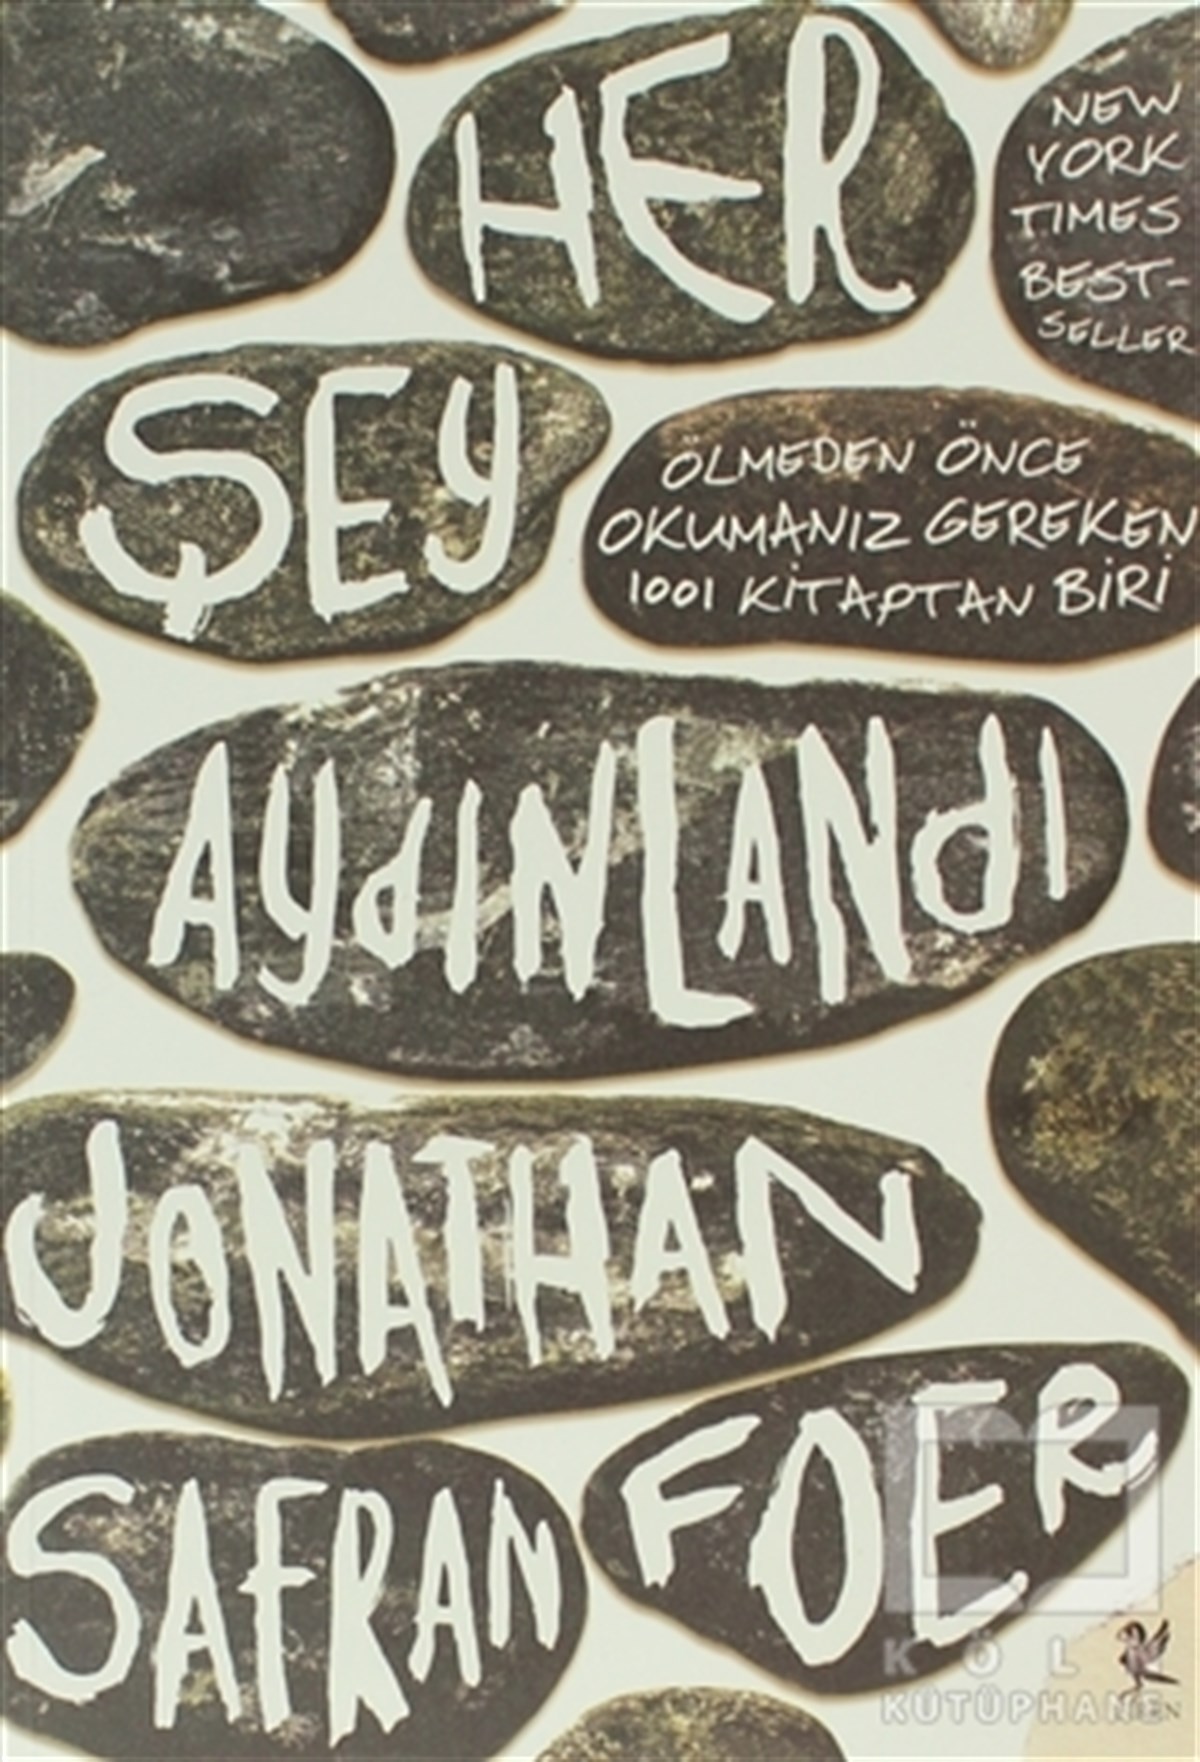 HER
NEW
YORK
TIMES
BEST-
SELLER
ŞEY
ÖLMEDEN ÖNCE
OKUMANIZ GEREKEN
1001 KİTAPTAN BİRİ
AYdINLANdI
JONATHAN
SAFRAN
FOER
KÖL
KÜTÜPHANE